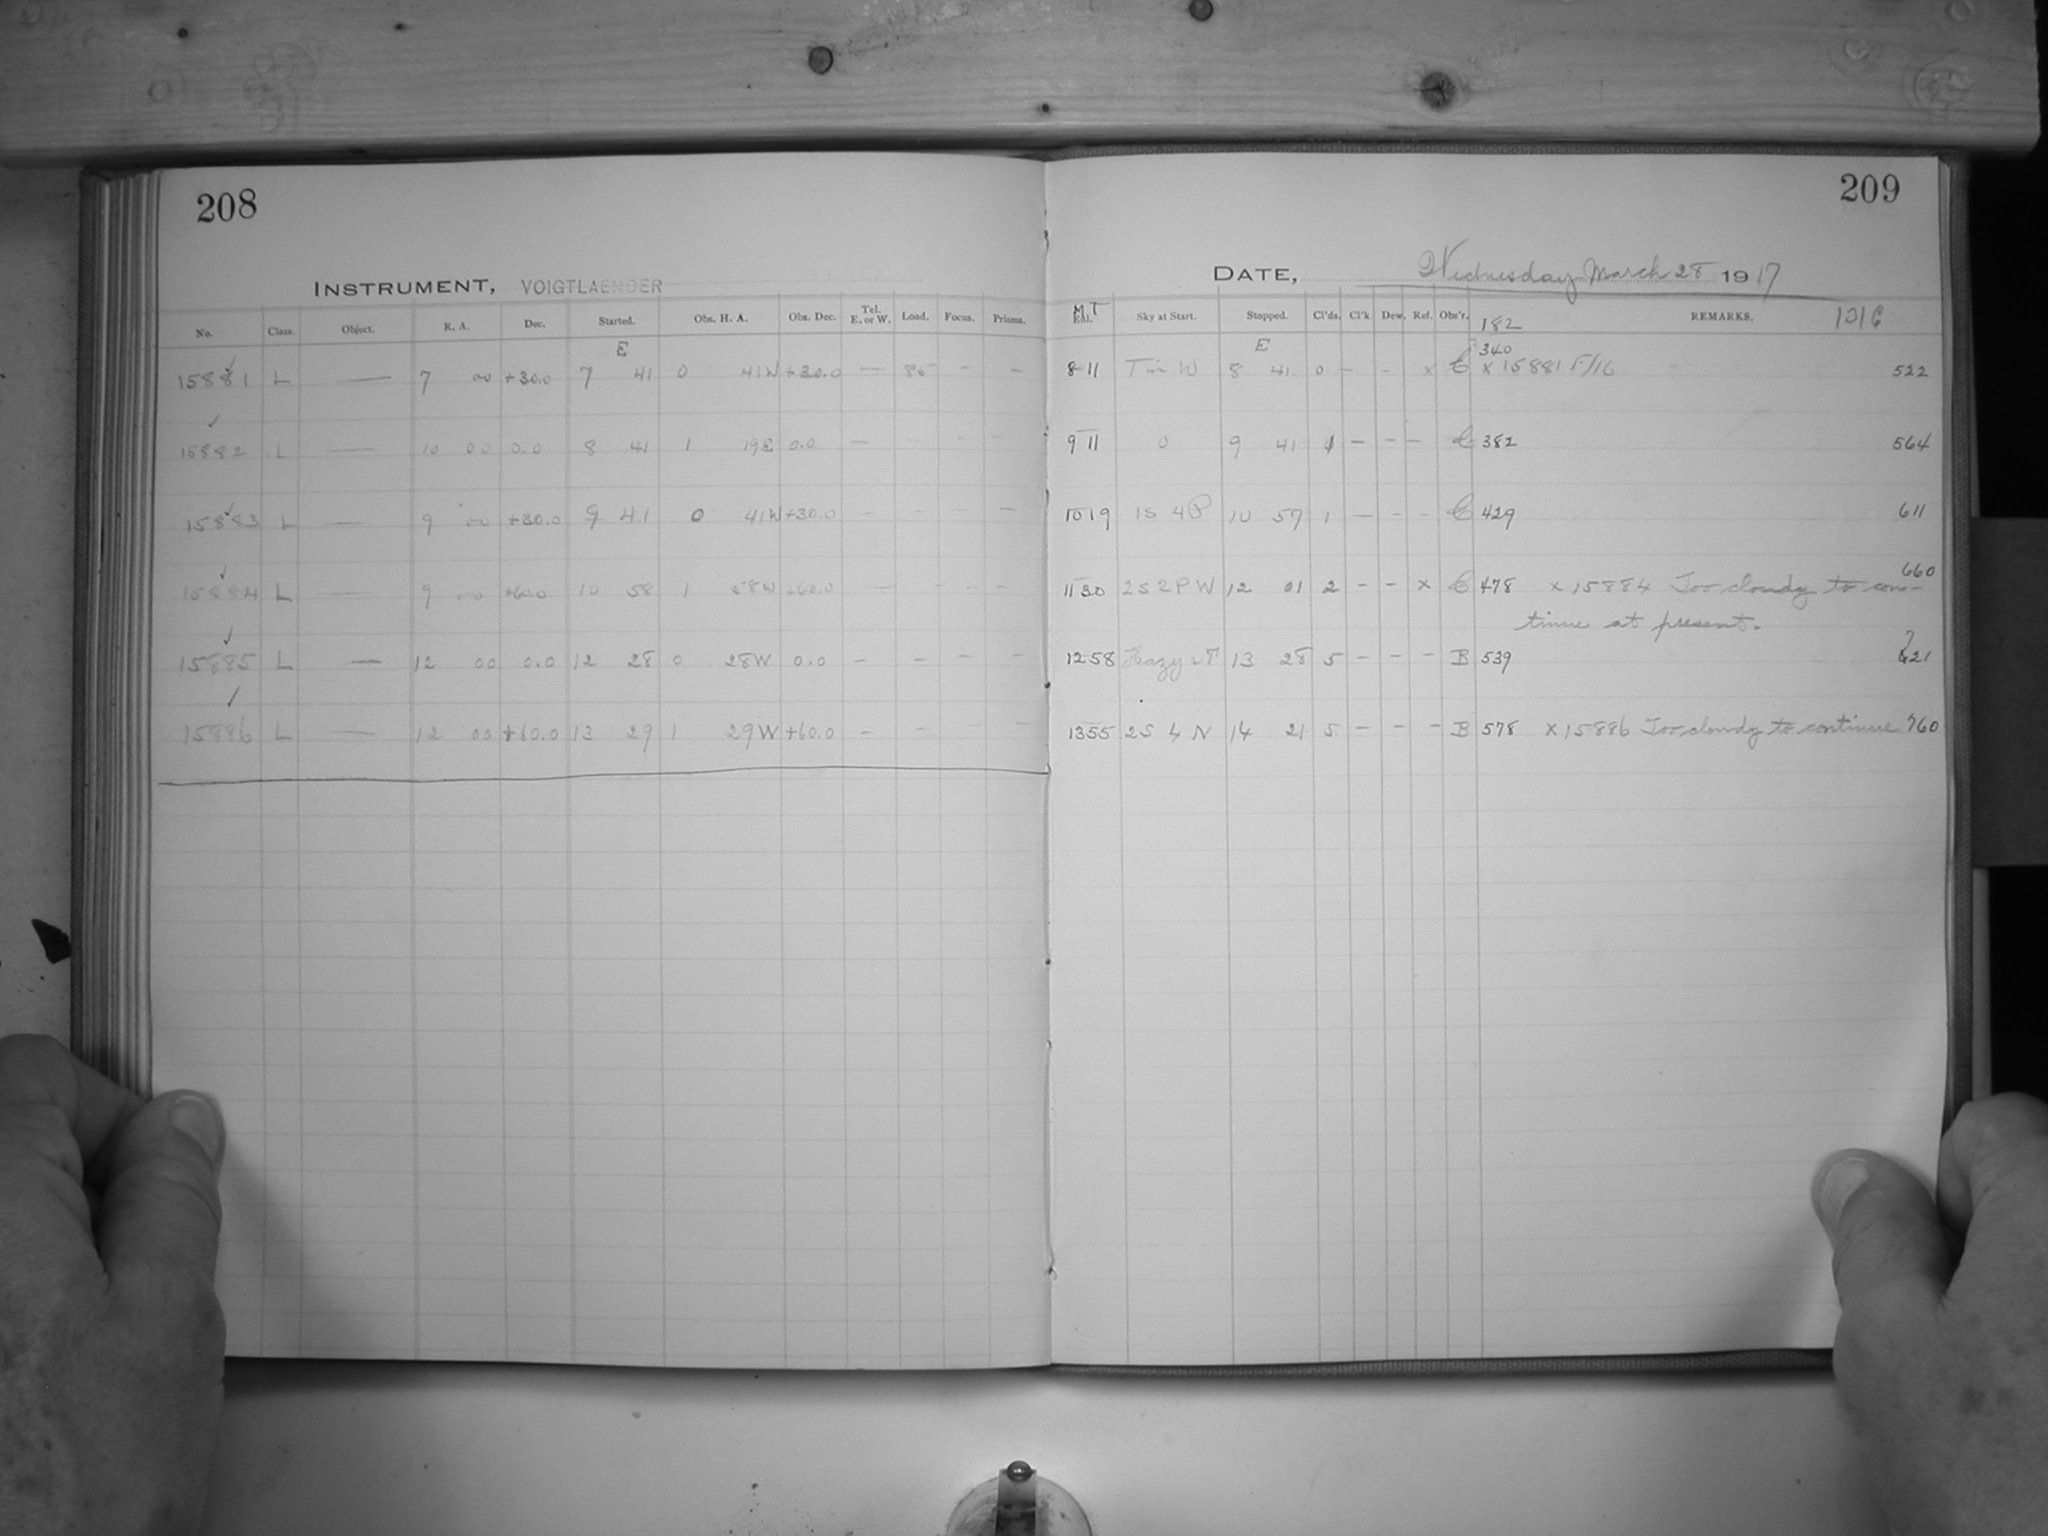 208
INSTRUMENT, VOIGTLAENDER
No. Class. Object. R. A. Dec. Started. Obs. H. A. Obs. Dec. Tel. E. or W. Load. Focus. Prisms.
E
15881 L — 7 00 +30.0 7 41 0 41W +30.0 — — —
15882 L — 10 00 0.0 8 41 1 19E 0.0 — — — —
15883 L — 9 00 +30.0 9 41 0 41W +30.0 — — — —
15884 L — 9 00 +60.0 10 58 1 58W +60.0 — — — —
15885 L — 12 00 0.0 12 28 0 28W 0.0 — — — —
15886 L — 12 00 +60.0 13 29 1 29W +60.0 — — — —
209
DATE, Wednesday March 28 1917
M.T. Sky at Start. Stopped. Cl'ds. Cl'k Dew. Ref. Obs'r. 182 REMARKS. 1316
E 340
8 11 8 41 0 — — x C x 15881 F/16 522
9 11 0 9 41 1 — — — C 382 564
10 19 1S 4P 10 57 1 — — — C 429 611
660
11 30 2S 2P W 12 01 2 — — x C 478 x 15884 Too cloudy to con-
tinue at present.
12 58 Hazy 13 28 5 — — — B 539 721
13 55 2S 4 N 14 21 5 — — — B 578 x 15886 Too cloudy to continue 760